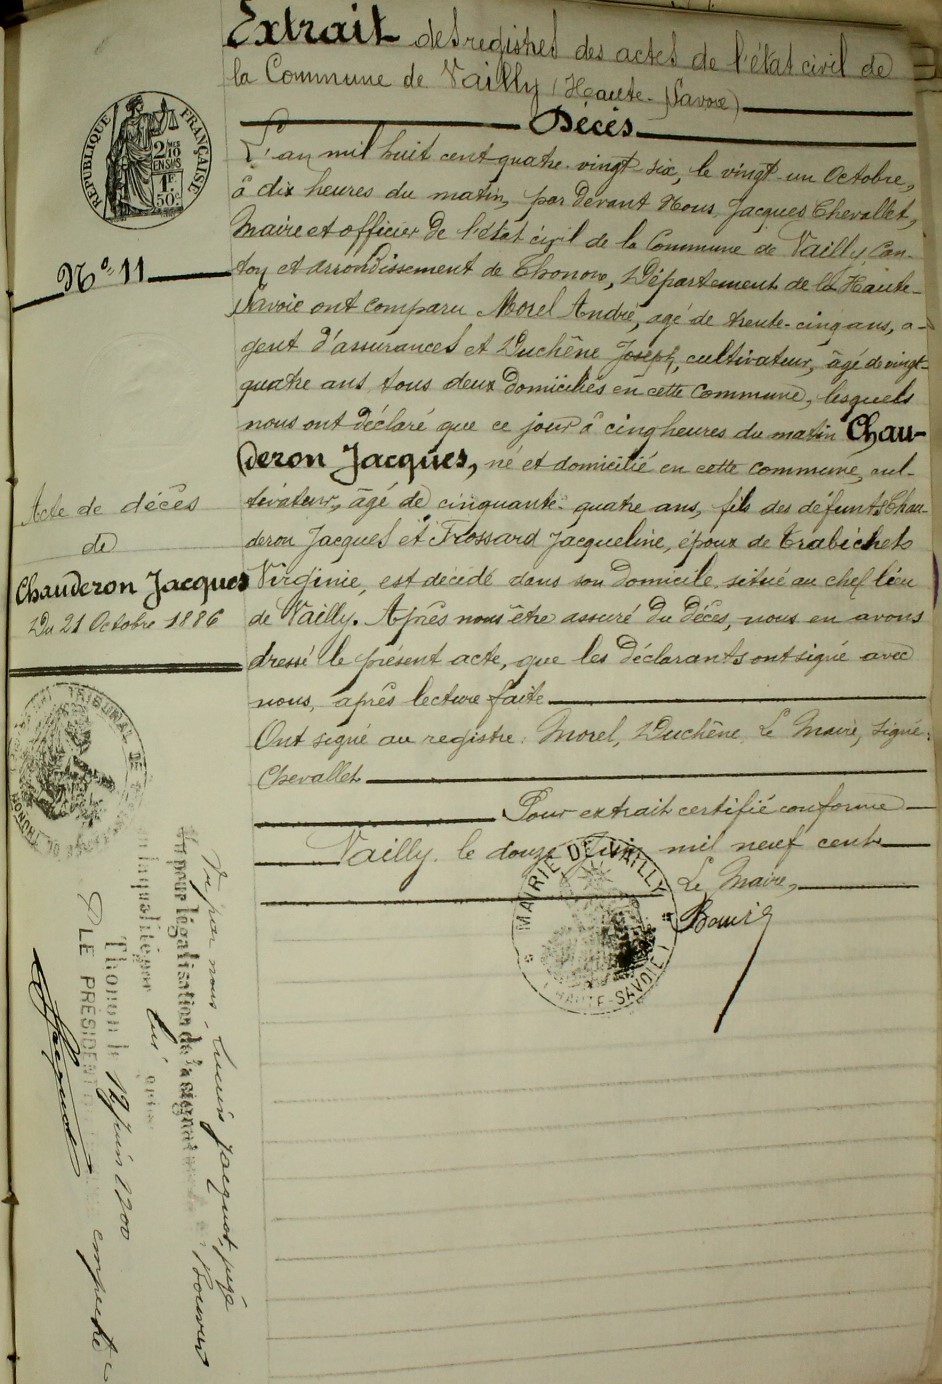 Extrait des registres des actes de l'état civil de
la Commune de Vailly (Haute-Savoie)
Décès
RÉPUBLIQUE FRANÇAISE
2/10
EN SUS
1F
50c
N° 11
L'an mil huit cent quatre-vingt-six, le vingt-un Octobre,
à dix heures du matin, par devant Nous Jacques Chevallet,
Maire et officier de l'état civil de la Commune de Vailly, Can-
ton et arrondissement de Thonon, Département de la Haute-
Savoie ont comparu Morel André, agé de trente-cinq ans, a-
gent d'assurances et Duchêne Joseph, cultivateur, âgé de vingt-
quatre ans tous deux domiciliés en cette commune, lesquels
nous ont déclaré que ce jour à cinq heures du matin Chau-
deron Jacques, né et domicilié en cette commune, cul-
tivateur, âgé de cinquante-quatre ans, fils des défunts Chau-
deron Jacques et Frossard Jacqueline, époux de Trabichet
Virginie, est décédé dans son domicile, situé au chef lieu
de Vailly. Après nous être assuré du décès, nous en avons
dressé le présent acte, que les déclarants ont signé avec
nous, après lecture faite
Ont signé au registre: Morel, Duchêne Le Maire, signé:
Chevallet
Pour extrait certifié conforme
Vailly, le douze Juin mil neuf cent
Le Maire,
MAIRIE DE VAILLY
(HAUTE-SAVOIE)
Acte de décès
de
Chauderon Jacques
Du 21 Octobre 1886
TRIBUNAL DE
THONON
Vu par nous, Lucien Jacquot, juge
Vu pour légalisation de la signature de
en la qualité par lui prise
Thonon le 12 Juin 1900
P LE PRÉSIDENT empêché
Jacquot